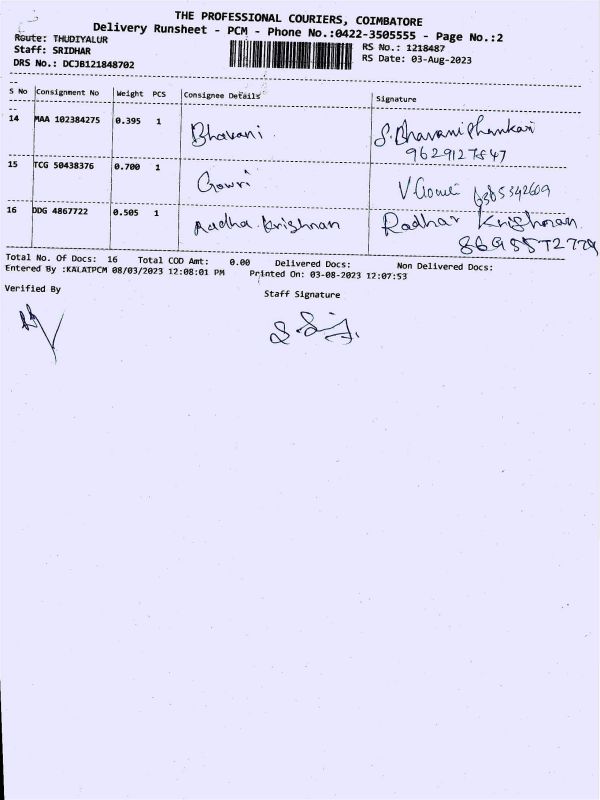 THE PROFESSIONAL COURIERS, COIMBATORE
Delivery Runsheet - PCM - Phone No.:0422-3505555 - Page No.:2
Route: THUDIYALUR
RS No.: 1218487
Staff: SRIDHAR
RS Date: 03-Aug-2023
DRS No.: DCJB121848702
S No Consignment No Weight PCS Consignee Details Signature
14 MAA 102384275 0.395 1 Bhavani. S. Bhavani Shankari
9629127547
15 TCG 50438376 0.700 1 Gowri V Gowri 6385342609
16 DDG 4867722 0.505 1 Radha Krishnan Radha Krishnan
Total No. Of Docs: 16 Total COD Amt: 0.00 Delivered Docs: Non Delivered Docs:
Entered By :KALATPCM 08/03/2023 12:08:01 PM Printed On: 03-08-2023 12:07:53
Verified By
Staff Signature